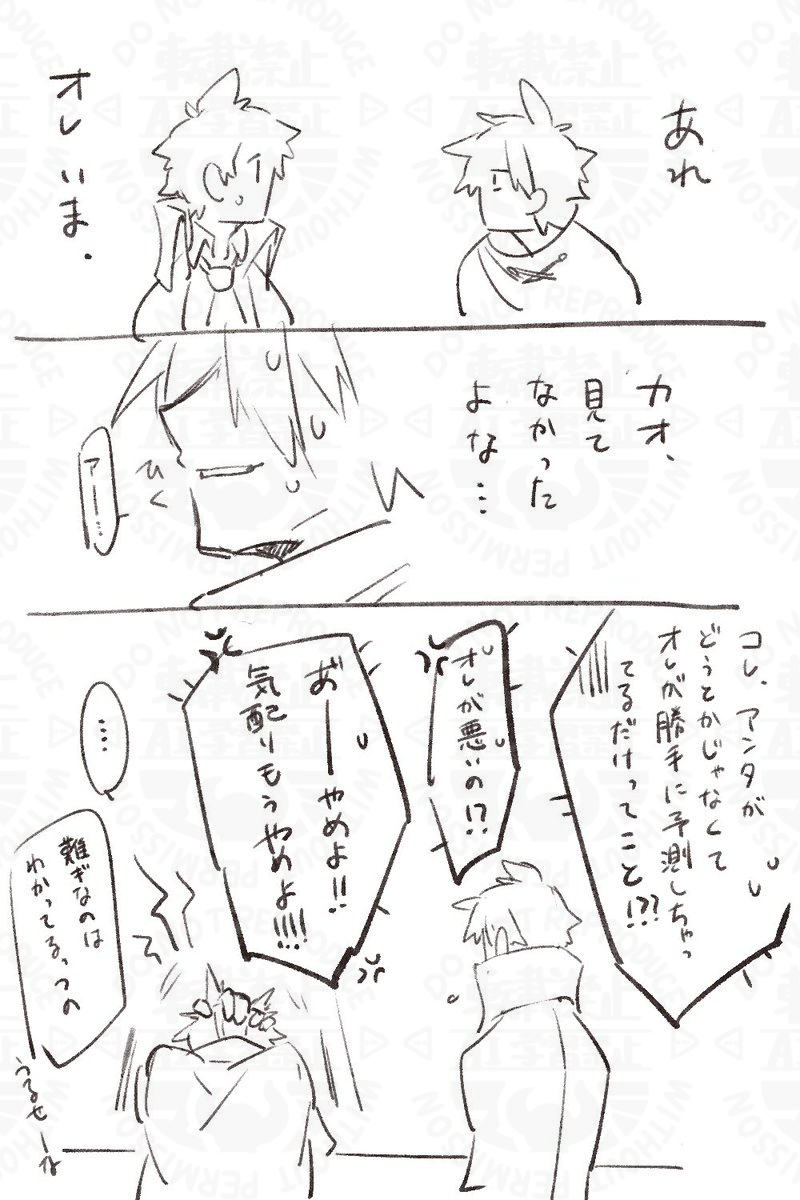 あれ
オレ いま.
カオ、
見て
なかった
よな…
ひく
アー…
コレ、アンタが
どうとかじゃなくて
オレが勝手に予測しちゃっ
てるだけってこと!??
オレが悪いの!?
あ゛ーーやめよ!!
気配りもうやめよ!!!!
…
難ぎなのは
わかってるっつの
うるせーな
DO NOT REPRODUCE
転載禁止
AI学習禁止
WITHOUT PERMISSION